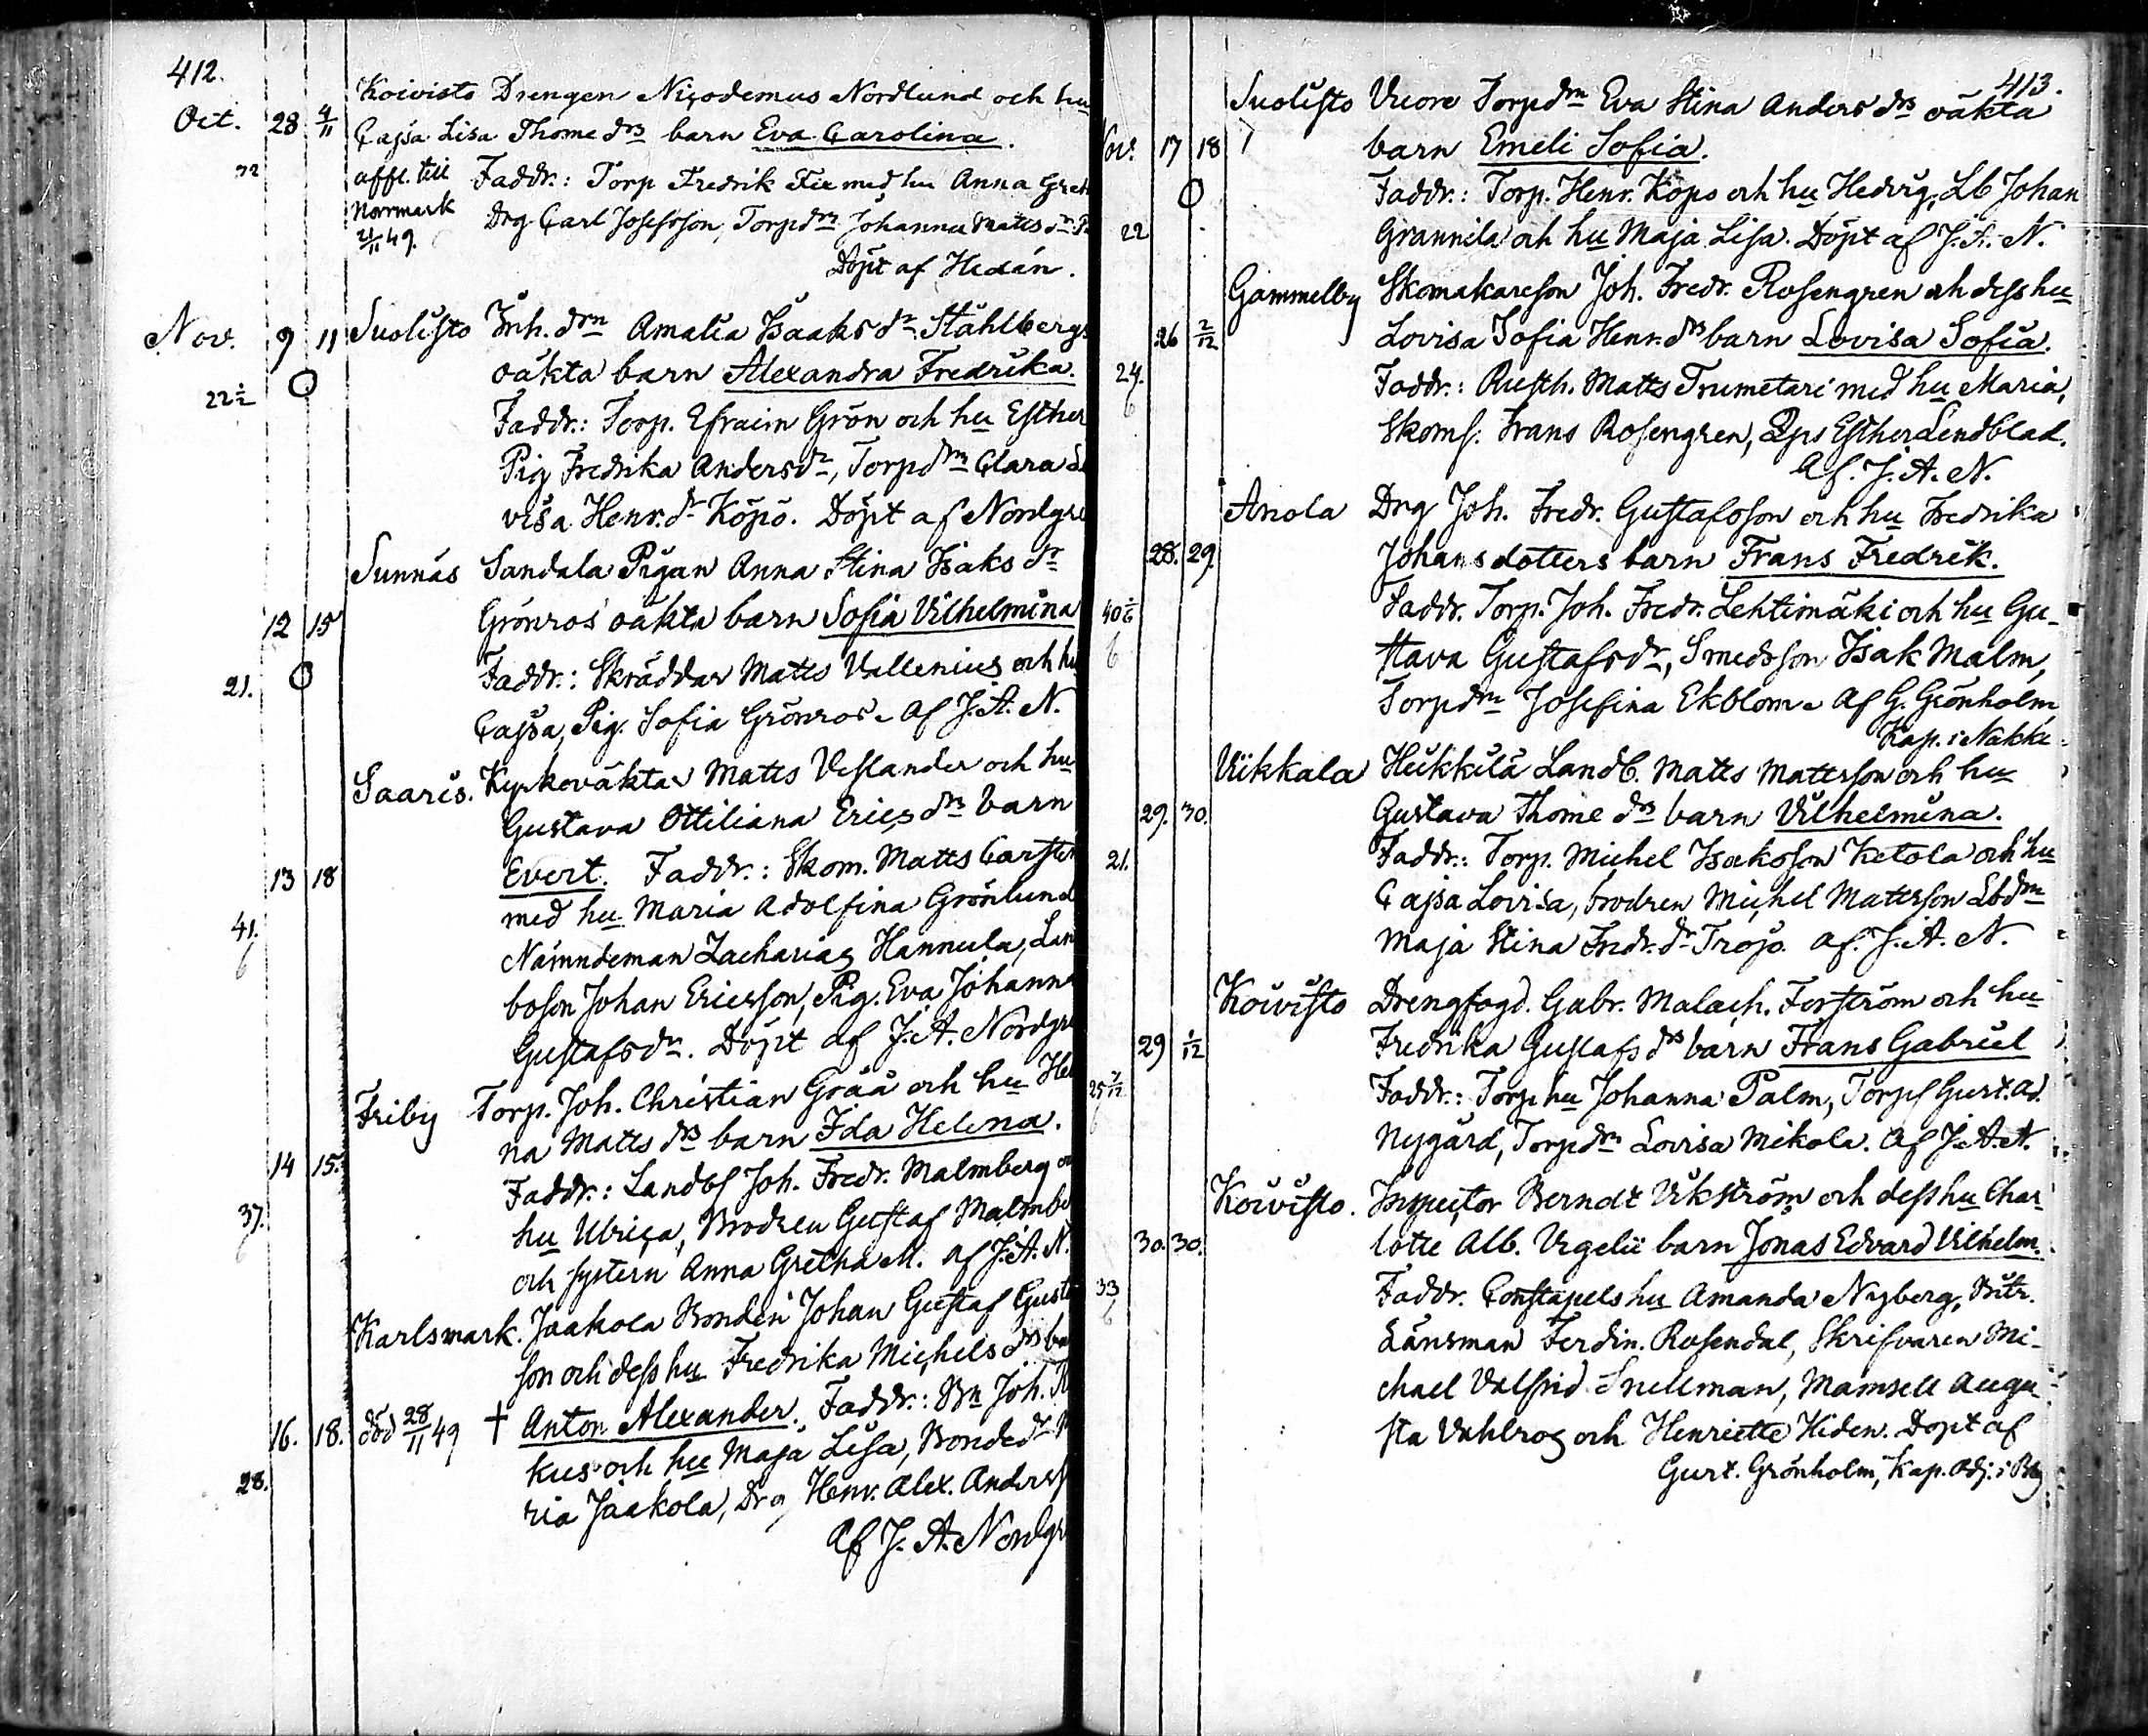 412.
Koivisto Drengen Nicodemus Nordlund och hu
Oct. 28 4/11 Cajsa Lisa Thome drs barn Eva Carolina.
affl. till Faddr.: Torp Fredrik Fix med hu Anna Greth
Norrmark Drg Carl Josefsson, Torpdrn Johanna Matts dr
21/11 49.
Döpt af Hedén.
Nov. 9 11 Suolisto Inh. drn Amalia Isaaks dr Ståhlbergs
oäkta barn Alexandra Fredrika.
22 1/2
Faddr.: Torp. Efraim Grön och hu Esther
Pig Fredrika Andersdr, Torpdrn Clara Lo
visa Henr. dr Köpö. Döpt af Nordgre
Sunnäs Sandala Pigan Anna Stina Isaks dr
12 15 Grönros oäkta barn Sofia Vilhelmina
21. Faddr.: Skräddar Matts Vallenius och hu
Cajsa, Pig. Sofia Grönros. Af J. A. N.
Saaris. Kyrkoväktar Matts Veslander och hu
Gustava Ottiliana Erics drs barn
13 18 Evert. Faddr.: Skom. Matts Carsten
41. med hu Maria Adolfina Grönlund
6 Nämndeman Zacharias Hannula, Lan
boson Johan Ericsson, Pig. Eva Johanna
Gustafsdr. Döpt af J. A. Nordgre
Friby Torp. Joh. Christian Grää och hu Hel
na Matts drs barn Ida Helena.
14 15. Faddr.: Landbs Joh. Fredr. Malmberg o
37. hu Ulrica, Brodren Gustaf Malmbe
6 och systern Anna Gretha M. af J. A. N.
Karlsmark. Jaakola Bonden Johan Gustaf Gusta
son och dess hu Fredrika Michels drs ba
16. 18. död 28/11 49 † Anton Alexander. Faddr.: Bn Joh.
kus och hu Maja Lisa, Bonded
28. ria Jaakola, Drg Henr. Alex. Anders
Af J. A. Nordgr
413.
Suolisto Vuore Torpdrn Eva Stina Anders drs oäkta
Nov. 17 18 barn Emeli Sofia.
Faddr.: Torp. Henr. Köpo och hu Hedvig, Lb Johan
22 Grannila och hu Maja Lisa. Döpt af J. A. N.
Gammelby Skomakareson Joh. Fredr. Rosengren och dess hu
26 2/12 Lovisa Sofia Henr. drs barn Lovisa Sofia.
24. Faddr.: Rusth. Matts Trumetari med hu Maria,
6 Skoms: Frans Rosengren, Esther Lendblad.
Af. J. A. N.
Anola Drg Joh. Fredr. Gustafsson och hu Fredrika
28. 29. Johansdotters barn Frans Fredrik.
40 Faddr. Torp. Joh. Fredr. Lehtimäki och hu Gu-
6 stava Gustafsdr, Smedsson Isak Malm,
Torpdrn Josefina Ekblom. Af G. Grönholm
Kap. i Nakki
Viikkala Heikkilä Landb. Matts Mattsson och hu
29. 30. Gustava Thome drs barn Vilhelmina.
21. Faddr.: Torp. Michel Isaksson Ketola och hu
Cajsa Lovisa, brodren Michel Mattsson Lbdrn
Maja Stina Fredr. dr Tröjö. af. J. A. N.
Koivisto Drengfogd. Gabr. Malach. Forström och hu
29 1/12 Fredrika Gustafs drs barn Frans Gabriel
25 1/2 Faddr.: Torp hu Johanna Palm, Torps Gust. Ad.
6 Nygård, Torpdrn Lovisa Mikola. Af J. A. N.
Koivisto. Inspector Berndt Vikström och dess hu Char
30. 30. lotte Alb. Vegelii barn Jonas Edvard Vilhelm.
33 Faddr. Constapels hu Amanda Nyberg, Bitr.
6 Länsman Ferdin. Rosendal, Skrifvaren Mi-
chael Valfrid Snellman, Mamsell Augu
sta Vahlroq och Henriette Hiden. Döpt af
Gust. Grönholm, Kap. Adj. i Bbg